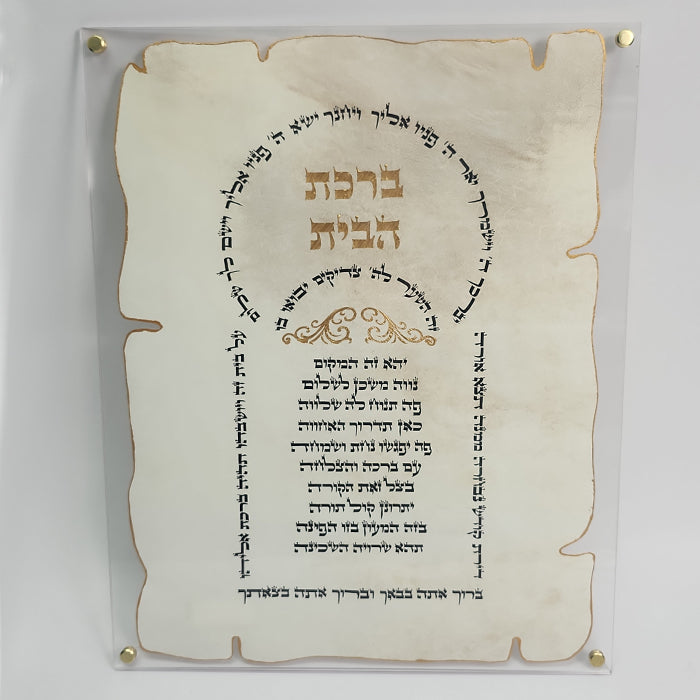 יברכך ה' וישמרך יאר ה' פניו אליך ויחנך ישא ה' פניו אליך וישם לך שלום
ברכת
הבית
זה השער לה' צדיקים יבואו בו
יהא זה המקום
נווה משכן לשלום
פה תנוח לה שלווה
כאן תדרוך האחווה
פה יפגשו נחת ושמחה
עם ברכה והצלחה
בצל זאת הקורה
יתרונן קול תורה
בזה המעון בזו הפינה
תהא שרויה השכינה
תצא אורה
על בית זה ויושביו תהיה ברכת
ברוך אתה בבאך וברוך אתה בצאתך